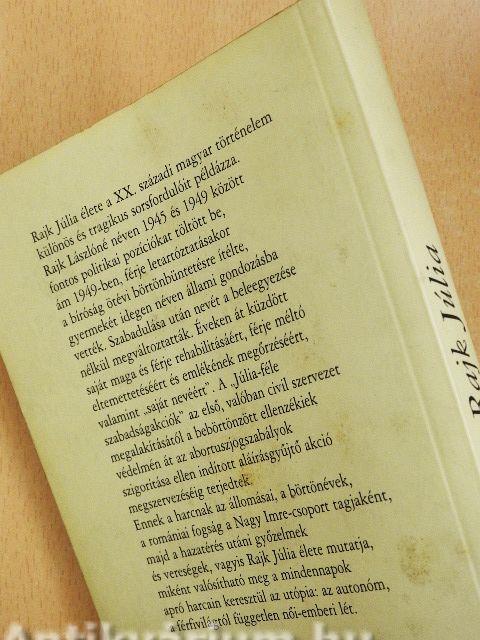 Rajk Júlia élete a XX. századi magyar történelem
különös és tragikus sorsfordulóit példázza.
Rajk Lászlóné néven 1945 és 1949 között
fontos politikai pozíciókat töltött be,
ám 1949-ben, férje letartóztatásakor
a bíróság ötévi börtönbüntetésre ítélte,
gyermekét idegen néven állami gondozásba
vették. Szabadulása után nevét a beleegyezése
nélkül megváltoztatták. Éveken át küzdött
saját maga és férje rehabilitásáért, férje méltó
eltemettetéséért és emlékének megőrzéséért,
valamint „saját nevéért”. A „Júlia-féle
szabadságakciók” az első, valóban civil szervezet
megalakításától a bebörtönzött ellenzékiek
védelmén át az abortuszjogszabályok
szigorítása ellen indított aláírásgyűjtő akció
megszervezéséig terjedtek.
Ennek a harcnak az állomásai, a börtönévek,
a romániai fogság a Nagy Imre-csoport tagjaként,
majd a hazatérés utáni győzelmek
és vereségek, vagyis Rajk Júlia élete mutatja,
miként valósítható meg a mindennapok
apró harcain keresztül az utópia: az autonóm,
a férfivilágtól független női-emberi lét.
Rajk Júlia